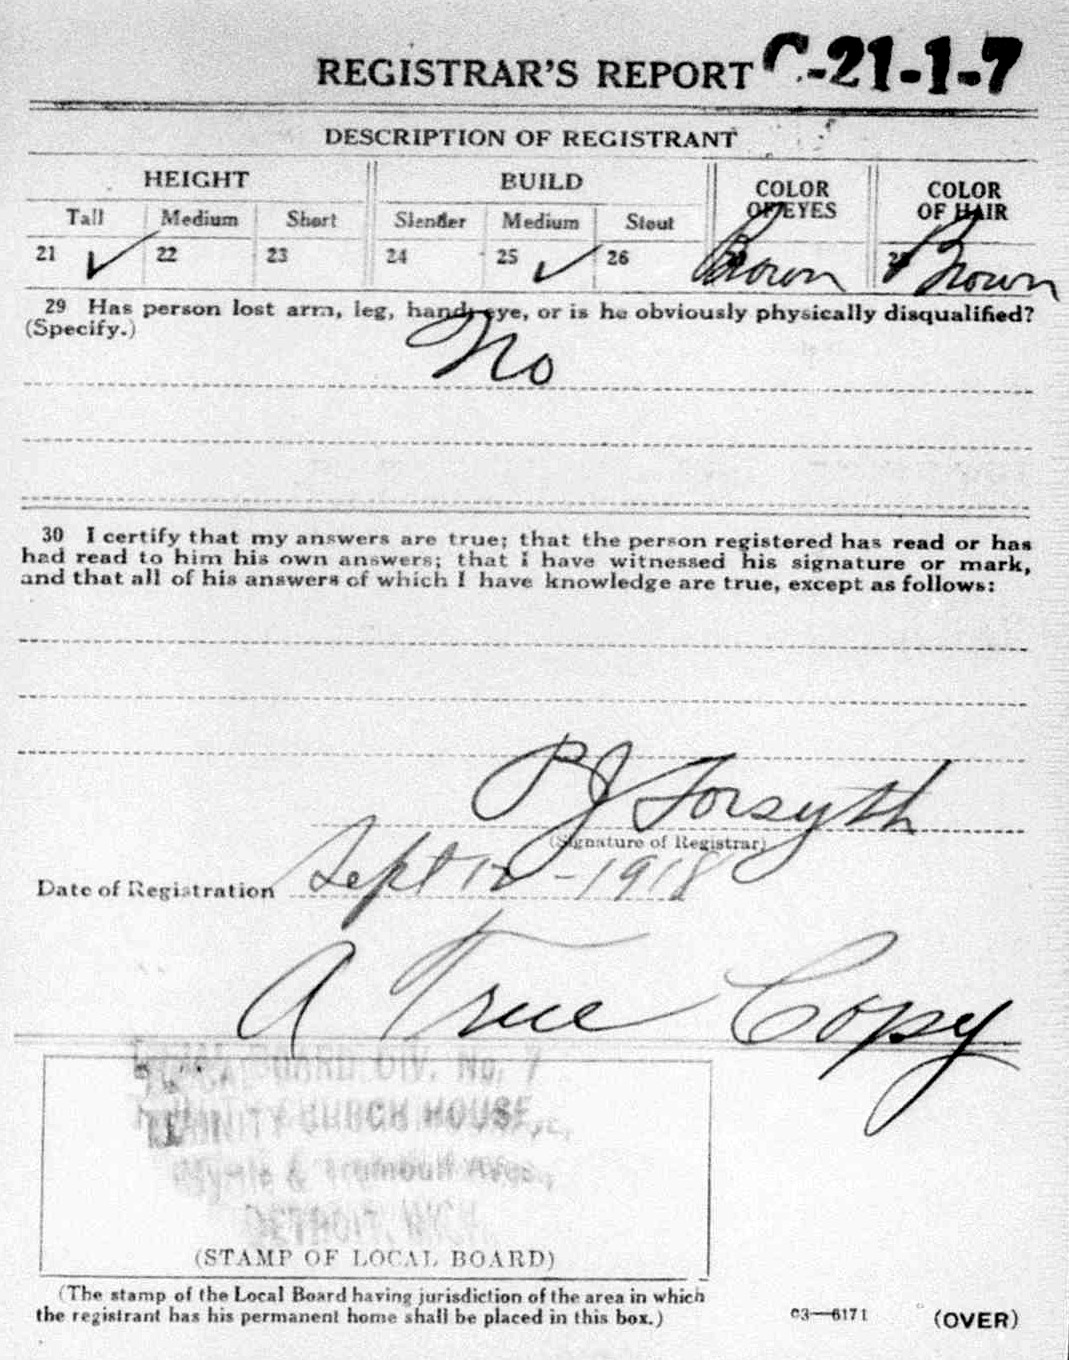 REGISTRAR'S REPORT C-21-1-7
DESCRIPTION OF REGISTRANT
HEIGHT BUILD COLOR OF EYES COLOR OF HAIR
Tall Medium Short Slender Medium Stout
21 ✓ 22 23 24 25 ✓ 26 Brown 28 Brown
29 Has person lost arm, leg, hand, eye, or is he obviously physically disqualified?
(Specify.)
No
30 I certify that my answers are true; that the person registered has read or has
had read to him his own answers; that I have witnessed his signature or mark,
and that all of his answers of which I have knowledge are true, except as follows:
P J Forsyth
(Signature of Registrar)
Date of Registration Sept 12 - 1918
A True Copy
LOCAL BOARD DIV. No. 7
TRINITY CHURCH HOUSE,
Myrtle & Trumbull Aves.,
DETROIT, MICH.
(STAMP OF LOCAL BOARD)
(The stamp of the Local Board having jurisdiction of the area in which
the registrant has his permanent home shall be placed in this box.)
03—6171 (OVER)